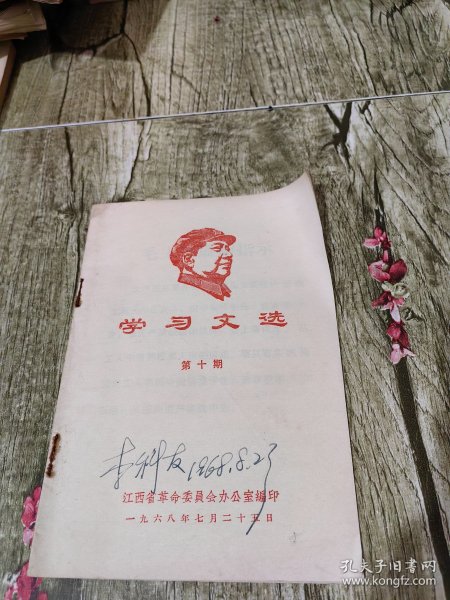 学习文选
第十期
李科友 1968.8.23
江西省革命委員会办公室编印
一九六八年七月二十五日
孔夫子旧书网
www.kongfz.com